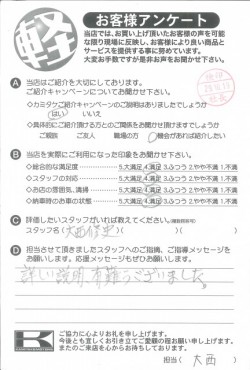 軽
お客様アンケート
当店では、お買い上げ頂いたお客様の声を可能
な限り現場に反映し、お客様により良い商品と
サービスを提供する事に努めています。
大変お手数ですが是非お声をお聞かせ下さい。
A 当店はご紹介を大切にしております。
ご紹介キャンペーンについてお聞かせ下さい。
・カミタケご紹介キャンペーンのご説明はありましたでしょうか
はい いいえ
・具体的にご紹介頂ける方とのご関係をお聞かせ頂けますでしょうか
ご親族 ご友人 職場の方 機会があれば紹介したい
B 当店を実際にご利用になった印象をお聞かせ下さい。
◇総合的な満足度 5.大満足 4.満足 3.ふつう 2.やや不満 1.不満
◇スタッフの対応 5.大満足 4.満足 3.ふつう 2.やや不満 1.不満
◇お店の雰囲気、清掃 5.大満足 4.満足 3.ふつう 2.やや不満 1.不満
◇納車時のお車の状態 5.大満足 4.満足 3.ふつう 2.やや不満 1.不満
C 評価したいスタッフがいれば教えてください。(複数回答可)
スタッフ名( 大西 )
D 担当させて頂きましたスタッフへのご指摘、ご指導メッセージを
お願いします。応援メッセージもぜひお願いします。
詳しい説明有難うございました。
K
ご協力に心よりお礼を申し上げます。
今後とも宜しくお引き立てご愛顧の程お願い申し上げます。
またのご来店を心からお待ちしております。
担当( 大西 )